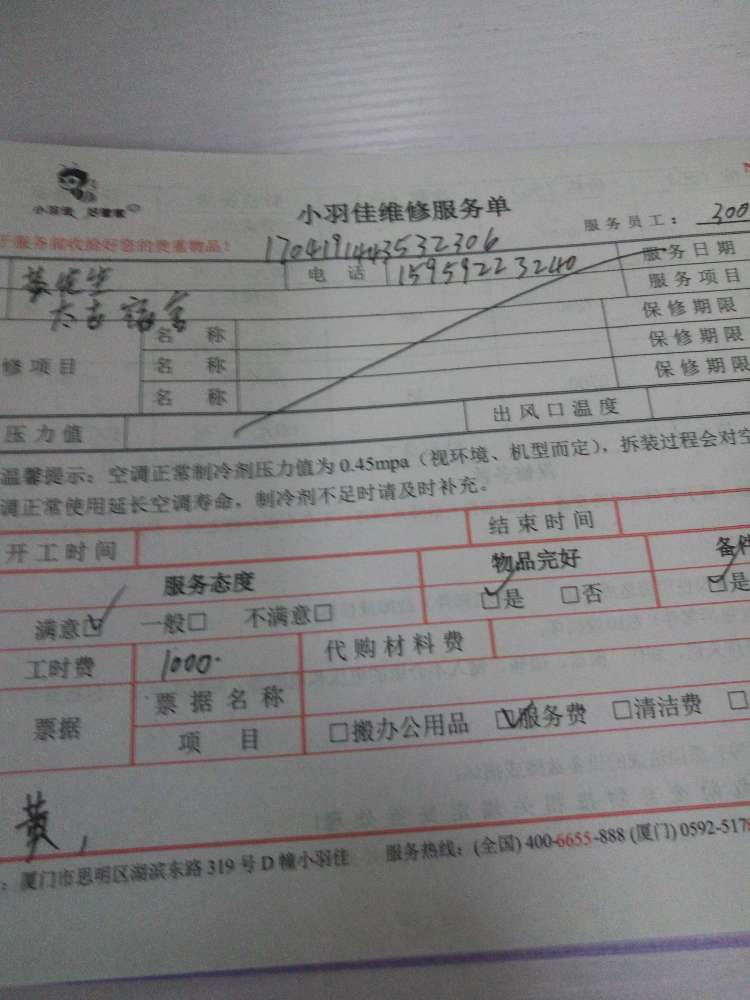 小羽佳 好管家
小羽佳维修服务单
服务员工: 300
服务前收拾好您的贵重物品!
170419143532306
电话 15959223240 服务日期
服务项目
名称 保修期限
修项目 名称 保修期限
名称 保修期限
压力值 出风口温度
温馨提示:空调正常制冷剂压力值为0.45mpa(视环境、机型而定),拆装过程会对空
调正常使用延长空调寿命,制冷剂不足时请及时补充。
开工时间 结束时间
服务态度 物品完好 备件
满意☑ 一般□ 不满意□ ☑是 □否 ☑是
工时费 1000. 代购材料费
票据 票据名称
项目 □搬办公用品 ☑服务费 □清洁费 □
黄
:厦门市思明区湖滨东路319号D幢小羽佳 服务热线:(全国)400-6655-888(厦门)0592-5178